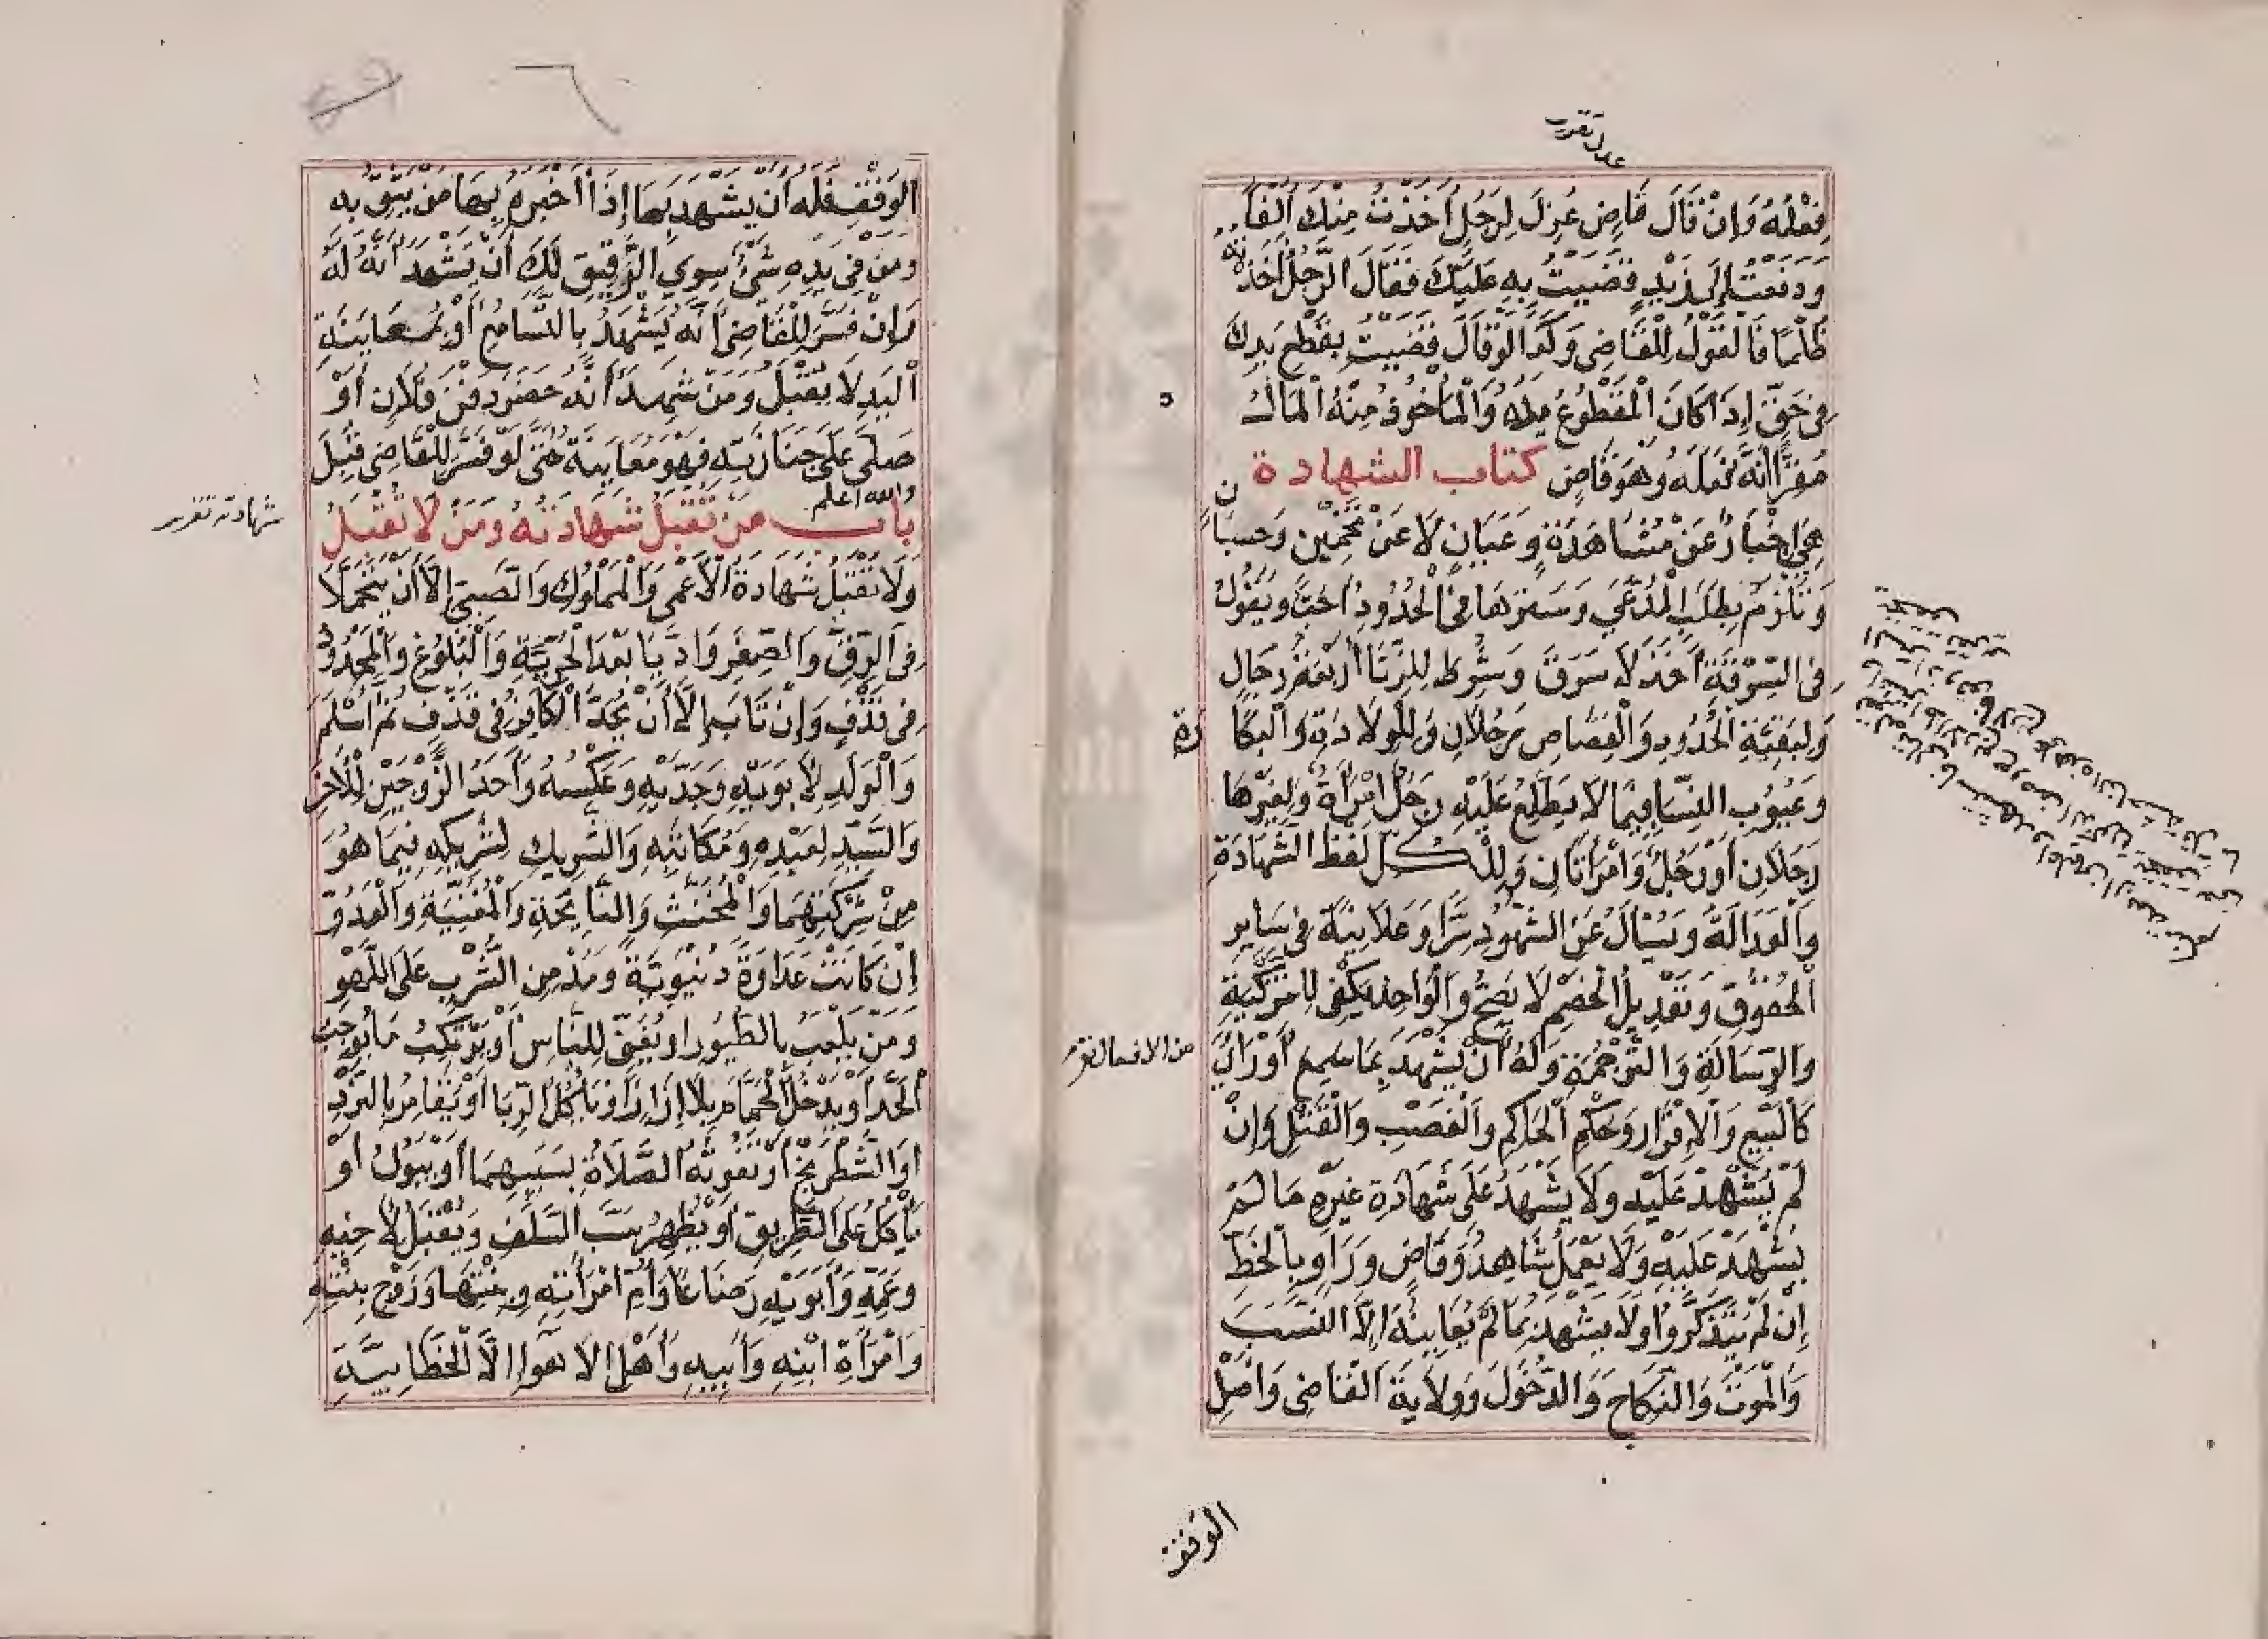 عدل تقرير
فِعْلُهُ وَإِنْ قَالَ قَاضٍ عُزِلَ لِرَجُلٍ أَخَذْتُ مِنْكَ أَلْفًا
وَدَفَعْتُ إِلَى زَيْدٍ قَضَيْتُ بِهِ عَلَيْكَ فَقَالَ الرَّجُلُ أَخَذْتَهُ
ظُلْمًا فَالْقَوْلُ لِلْقَاضِي وَكَذَا لَوْ قَالَ قَضَيْتُ بِقَطْعِ يَدِكَ
فِي حَقٍّ إِذَا كَانَ الْمَقْطُوعُ يَدُهُ وَالْمَأْخُوذُ مِنْهُ الْمَالُ
مُقِرًّا أَنَّهُ فَعَلَهُ وَهُوَ قَاضٍ كتاب الشهادة
هِيَ إِخْبَارٌ عَنْ مُشَاهَدَةٍ وَعَيَانٍ لَا عَنْ تَخْمِينٍ وَحِسْبَانٍ
وَتَلْزَمُ بِطَلَبِ الْمُدَّعِي وَسَتْرُهَا فِي الْحُدُودِ أَحَبُّ وَيَقُولُ
فِي السَّرِقَةِ أَخَذَ لَا سَرَقَ وَشُرِطَ لِلزِّنَا أَرْبَعَةُ رِجَالٍ
وَلِبَقِيَّةِ الْحُدُودِ وَالْقِصَاصِ رَجُلَانِ وَلِلْوِلَادَةِ وَالْبَكَارَةِ
وَعُيُوبِ النِّسَا فِيمَا لَا يَطَّلِعُ عَلَيْهِ رَجُلٌ امْرَأَةٌ وَلِغَيْرِهَا
رَجُلَانِ أَوْ رَجُلٌ وَامْرَأَتَانِ وَلِلْكُلِّ لَفْظُ الشَّهَادَةِ
وَالْعَدَالَةُ وَيُسْأَلُ عَنِ الشُّهُودِ سِرًّا وَعَلَانِيَةً فِي سَايِرِ
الْحُقُوقِ وَتَعْدِيلُ الْخَصْمِ لَا يَصِحُّ وَالْوَاحِدُ يَكْفِي لِلتَّزْكِيَةِ
وَالرِّسَالَةِ وَالتَّرْجُمَةِ وَلَهُ أَنْ يَشْهَدَ بِمَا سَمِعَ أَوْ رَأَى
من الافعال تقرير
كَالْبَيْعِ وَالْإِقْرَارِ وَحُكْمِ الْحَاكِمِ وَالْغَصْبِ وَالْقَتْلِ وَإِنْ
لَمْ يُشْهَدْ عَلَيْهِ وَلَا يَشْهَدُ عَلَى شَهَادَةِ غَيْرِهِ مَا لَمْ
يُشْهَدْ عَلَيْهِ وَلَا يَعْمَلُ شَاهِدٌ وَقَاضٍ وَرَاوٍ بِالْخَطِّ
إِنْ لَمْ يَتَذَكَّرُوا وَلَا يَشْهَدُ بِمَا لَمْ يُعَايِنْهُ إِلَّا النَّسَبَ
وَالْمَوْتَ وَالنِّكَاحَ وَالدُّخُولَ وَوِلَايَةَ الْقَاضِي وَأَصْلَ
الوقف
الْوَقْفِ فَلَهُ أَنْ يَشْهَدَ بِهَا إِذَا أَخْبَرَهُ بِهَا مَنْ يَثِقُ بِهِ
وَمَنْ فِي يَدِهِ شَيْءٌ سِوَى الرَّقِيقِ لَكَ أَنْ تَشْهَدَ أَنَّهُ لَهُ
وَإِنْ فَسَّرَ لِلْقَاضِي أَنَّهُ يَشْهَدُ بِالتَّسَامُعِ أَوْ بِمُعَايَنَةِ
الْيَدِ لَا يُقْبَلُ وَمَنْ شَهِدَ أَنَّهُ حَضَرَ دَفْنَ فُلَانٍ أَوْ
صَلَّى عَلَى جَنَازَتِهِ فَهُوَ مُعَايَنَةٌ حَتَّى لَوْ فَسَّرَ لِلْقَاضِي قُبِلَ
والله اعلم
باب مَنْ تُقْبَلُ شَهَادَتُهُ وَمَنْ لَا تُقْبَلُ
شهادته تقرير
وَلَا تُقْبَلُ شَهَادَةُ الْأَعْمَى وَالْمَمْلُوكِ وَالصَّبِيِّ إِلَّا أَنْ يَتَحَمَّلَا
فِي الرِّقِّ وَالصِّغَرِ وَأَدَّيَا بَعْدَ الْحُرِّيَّةِ وَالْبُلُوغِ وَالْمَحْدُودِ
فِي قَذْفٍ وَإِنْ تَابَ إِلَّا أَنْ يُحَدَّ الْكَافِرُ فِي قَذْفٍ ثُمَّ أَسْلَمَ
وَالْوَلَدِ لِأَبَوَيْهِ وَجَدَّيْهِ وَعَكْسُهُ وَأَحَدُ الزَّوْجَيْنِ لِلْآخَرِ
وَالسَّيِّدِ لِعَبْدِهِ وَمُكَاتَبِهِ وَالشَّرِيكِ لِشَرِيكِهِ فِيمَا هُوَ
مِنْ شِرْكَتِهِمَا وَالْمُخَنَّثِ وَالنَّايِحَةِ وَالْمُغَنِّيَةِ وَالْعَدُوِّ
إِنْ كَانَتْ عَدَاوَةً دُنْيَوِيَّةً وَمُدْمِنِ الشُّرْبِ عَلَى اللَّهْوِ
وَمَنْ يَلْعَبُ بِالطُّيُورِ أَوْ يُغَنِّي لِلنَّاسِ أَوْ يَرْتَكِبُ مَا يُوجِبُ
الْحَدَّ أَوْ يَدْخُلُ الْحَمَّامَ بِلَا إِزَارٍ أَوْ يَأْكُلُ الرِّبَا أَوْ يُقَامِرُ بِالنَّرْدِ
أَوِ الشَّطْرَنْجِ أَوْ تَفُوتُهُ الصَّلَاةُ بِسَبَبِهِمَا أَوْ يَبُولُ أَوْ
يَأْكُلُ عَلَى الطَّرِيقِ أَوْ يُظْهِرُ سَبَّ السَّلَفِ وَيُقْبَلُ لِأَخِيهِ
وَعَمِّهِ وَأَبَوَيْهِ رَضَاعًا وَأُمِّ امْرَأَتِهِ وَبِنْتِهَا وَزَوْجِ بِنْتِهِ
وَامْرَأَةِ ابْنِهِ وَأَبِيهِ وَأَهْلِ الْأَهْوَاءِ إِلَّا الْخَطَّابِيَّةَ